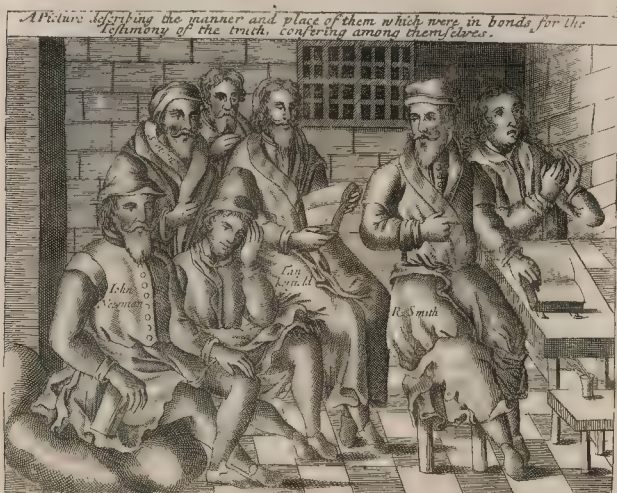 A Picture describing the manner and place of them which were in bonds for the
Testimony of the truth, confering among themselves.
Iohn
Newman
R. Smith